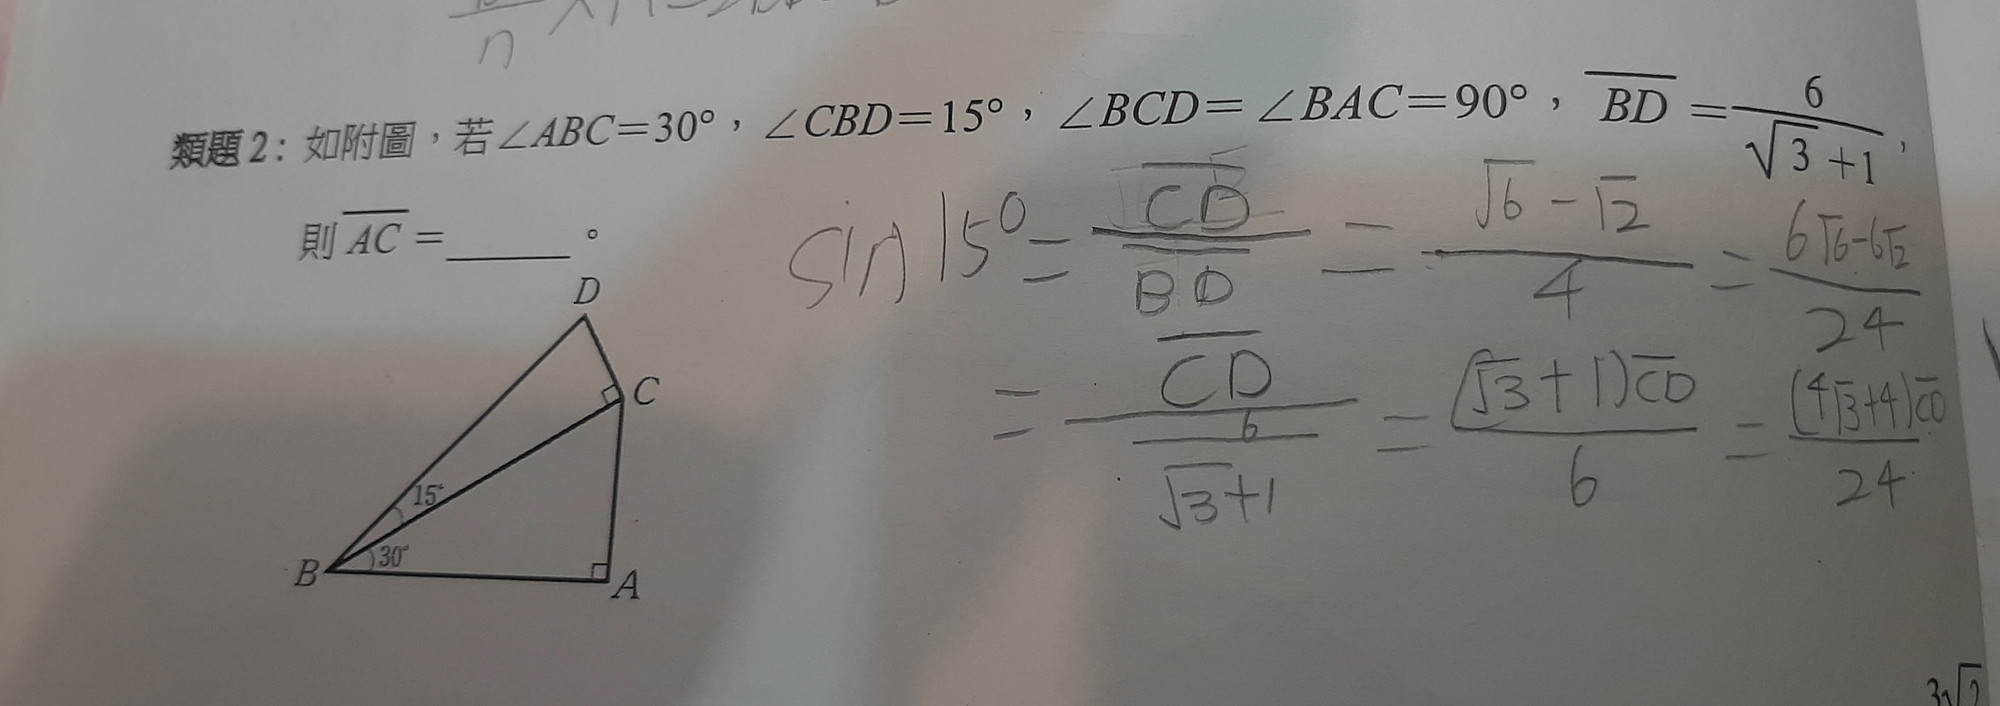 n
類題 2：如附圖，若∠ABC=30°，∠CBD=15°，∠BCD=∠BAC=90°，\overline{BD}=\frac{6}{\sqrt{3}+1}，
則 \overline{AC}=______。
sin 15° = \frac{\overline{CD}}{\overline{BD}} = \frac{\sqrt{6}-\sqrt{2}}{4} = \frac{6\sqrt{6}-6\sqrt{2}}{24}
= \frac{\overline{CD}}{\frac{6}{\sqrt{3}+1}} = \frac{(\sqrt{3}+1)\overline{CD}}{6} = \frac{(4\sqrt{3}+4)\overline{CD}}{24}
D
C
15°
B
30°
A